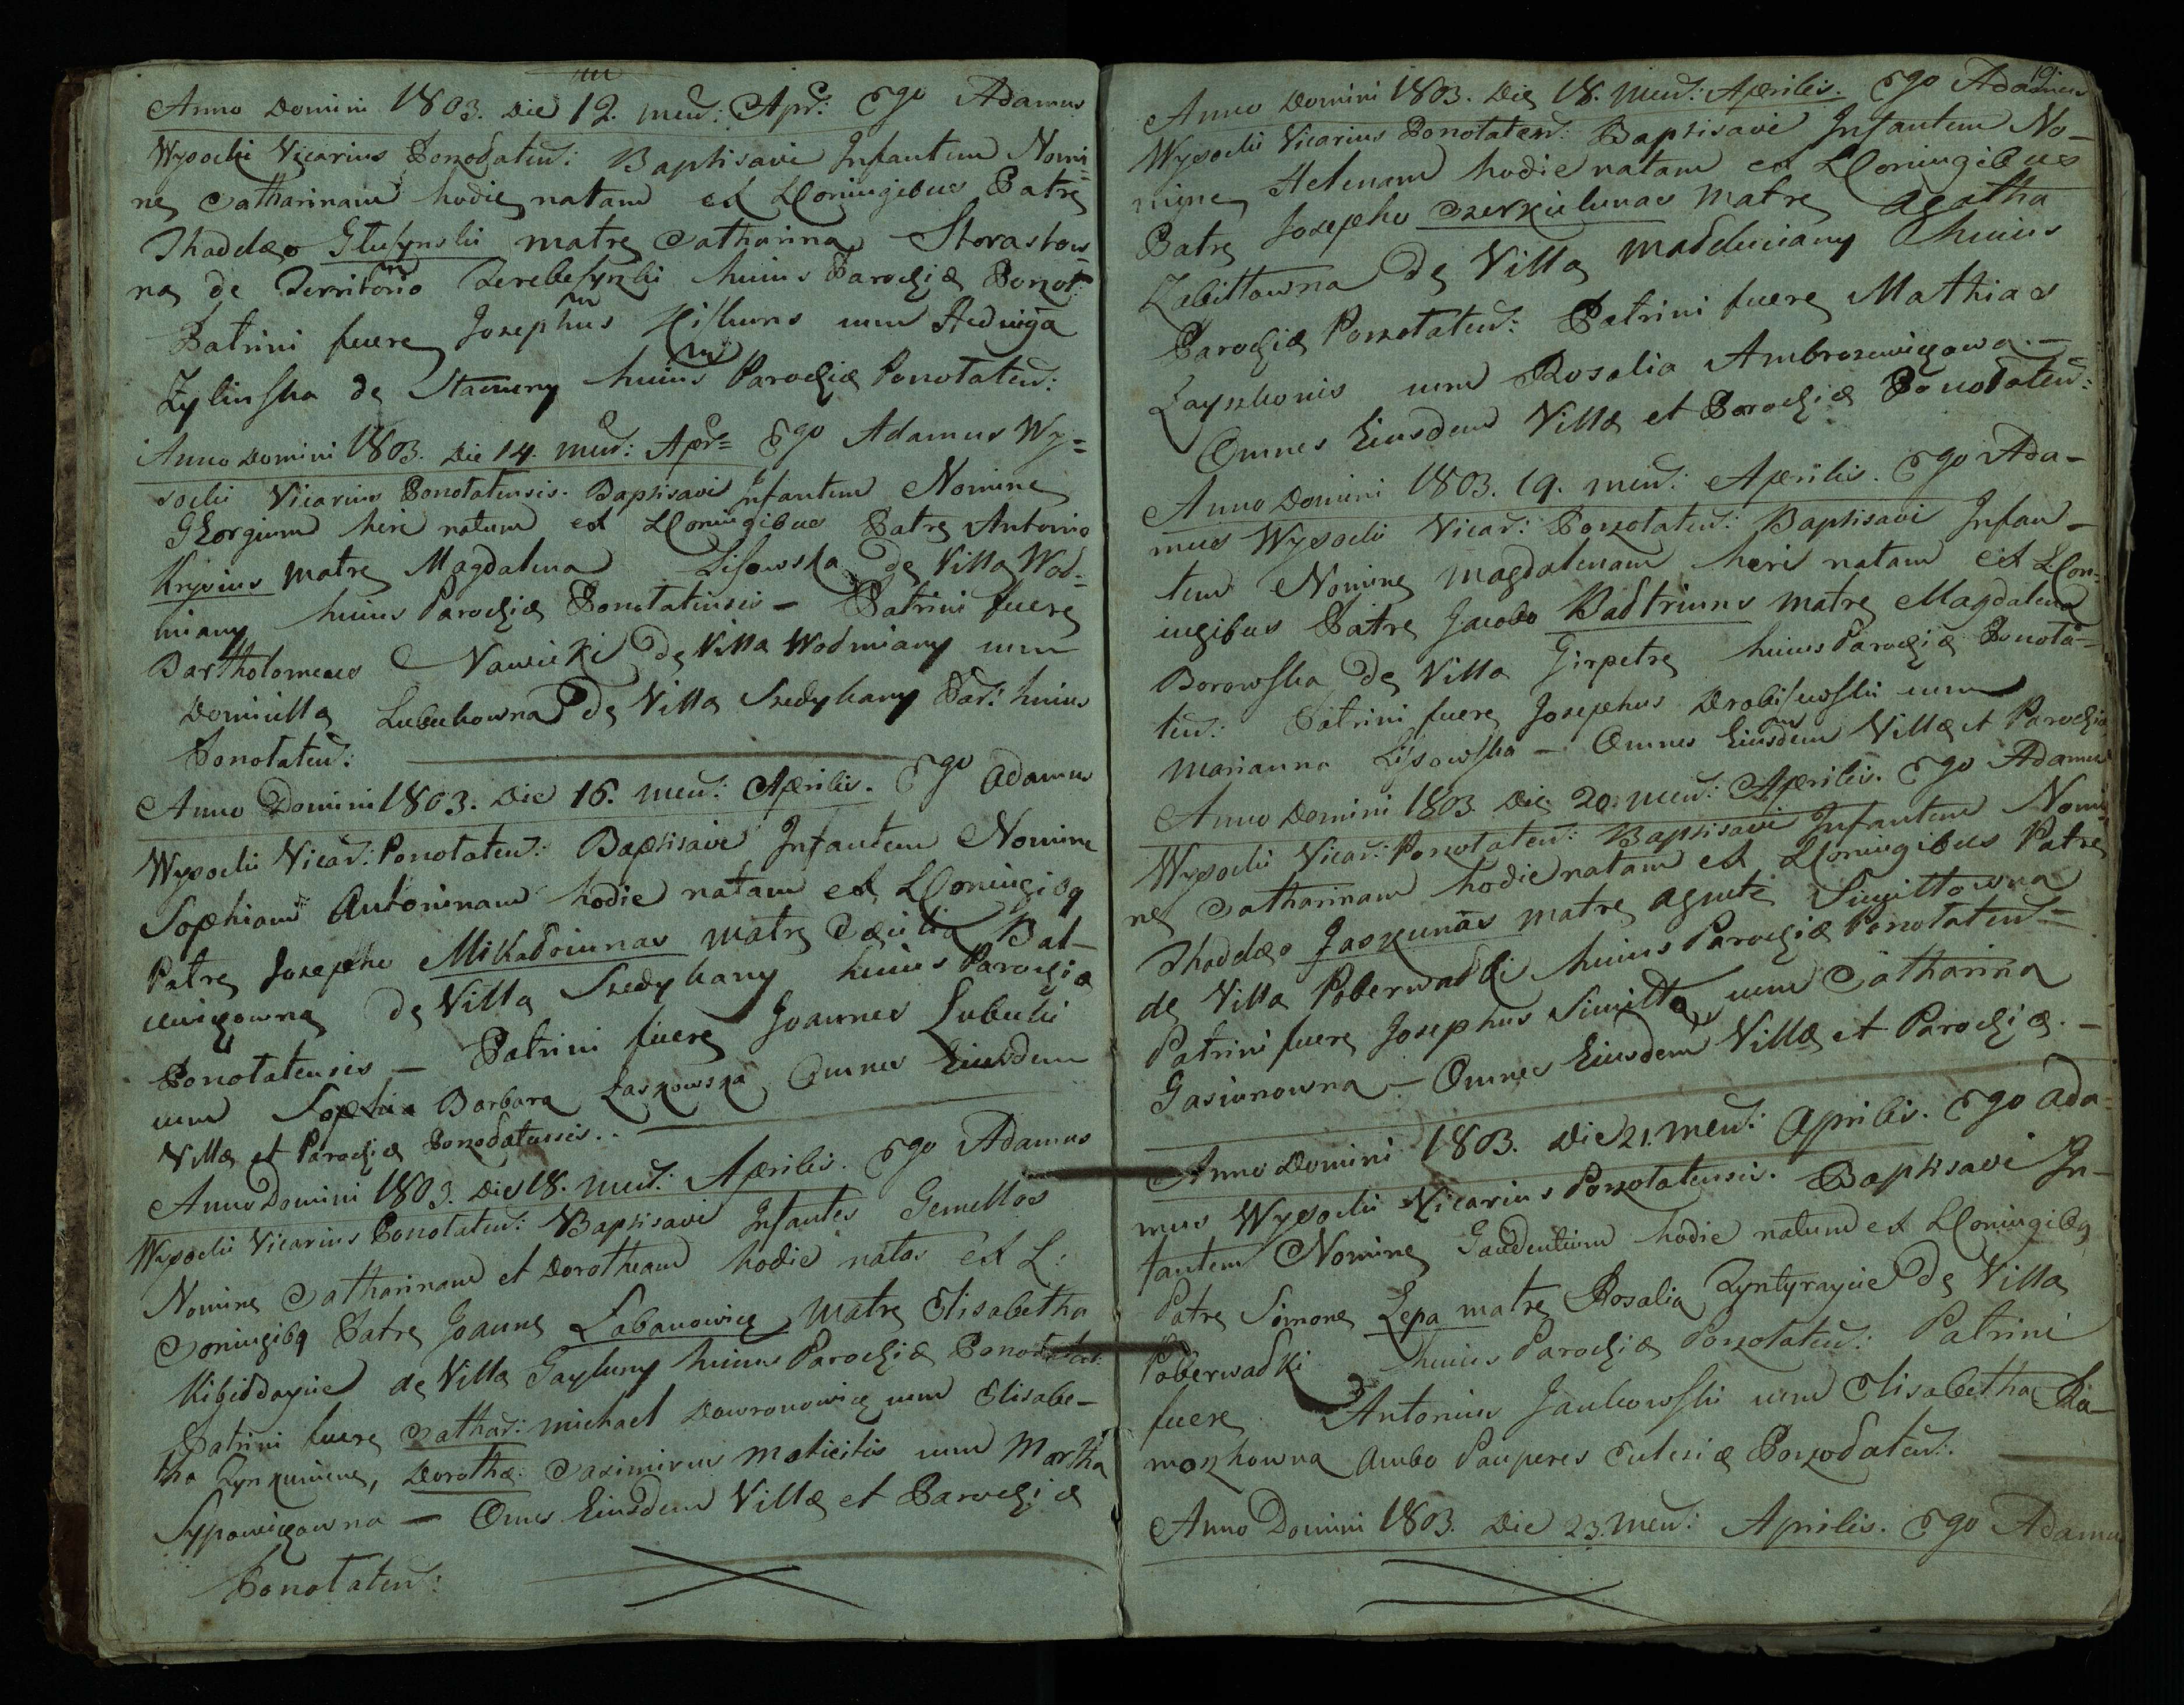 Anno Domini 1803. Die 12. men: Apr: Ego Adamus
Wysocki Vicarius Ponotaten: Baptisavi Infantem Nomi=
ne Catharinam hodie natam ex LConiugibus Patre
Thaddæo Glusynski matre Catharina
na de Territorio huius Parochiæ Ponot:
Patrini fuere Josephus cum Hedwiga
Zylinska de huius Parochiæ Ponotaten:
Anno Domini 1803. Die 14. men: Apr= Ego Adamus Wy=
socki Vicarius Ponotatensis. Baptisavi Infantem Nomine
Georgium heri natum ex LConiugibus Patre Antonio
Krygius matre Magdalena Lisowska de Villa Wod=
miany huius Parochiæ Ponotatensis – Patrini fuere
Bartholomeus Nawicki de Villa Wodmiany cum
Domicilla Lubuchowna de Villa Szedykany Par: huius
Ponotaten:
Anno Domini 1803. Die 16. men: Aprilis. Ego Adamus
Wysocki Vicar: Ponotaten: Baptisavi Infantem Nomine
Sophiam Antoninam hodie natam ex LConiugibq
Patre Josepho Mikadoiunas matre Cæcilia But-
de Villa Szedykany huius Parochiæ
Ponotatensis – Patrini fuere Joannes Lubecki
cum Sophia Barbara Laskowska Omnes Eiusdem
Villæ et Parochiæ Ponodatensis..
Anno Domini 1803. Die 18. men: Aprilis. Ego Adamus
Wysocki Vicarius Ponotaten: Baptisavi Infantes Gemellos
Nomine Catharinam et Dorotheam hodie natos ex L:
Coniugibq Patre Joanne Labanowicz Matre Elisabetha
de Villa Gayluny huius Parochiæ Ponotaten:
Patrini fuere Cathar: Michael Dowronowicz cum Elisabe-
tha Dorothæ: Casimirus cum Martha
Sypowiczowna – Omes Eiusdem Villæ et Parochiæ
Ponotaten:
Anno Domini 1803. Die 18. Men: Aprilis. Ego Adamus
Wysocki Vicarius Ponotaten: Baptisavi Infantem No-
mine Helenam hodie natam ex LConiugibus
Patre Josepho matre Agatha
Zabittowna de Villa huius
Parochiæ Ponotaten: Patrini fuere Mathias
cum Rosalia Ambrozewiczowa. –
Omnes Eiusdem Villæ et Parochiæ Ponodaten:
Anno Domini 1803. 19. men: Aprilis. Ego Ada-
mus Wysocki Vicar: Ponotaten: Baptisavi Infan-
tem Nomine Magdalenam heri natam ex LCon-
iugibus Patre Jacobo matre Magdalena
Borowska de Villa Girpetre huius Parochiæ Ponota-
ten: Patrini fuere Josephus Drobisewski cum
Marianna Lisowska – Omnes Eiusdem Villæ et Parochiæ
Anno Domini 1803 Die 20. Men: Aprilis. Ego Adamus
Wysocki Vicar: Ponotaten: Baptisavi Infantem Nomi-
ne Catharinam hodie natam ex LConiugibus Patre
Thaddæo Jaszkunas matre Agnete
de Villa Poberwadki huius Parochiæ Ponotaten=
Patrini fuere Josephus cum Catharina
Gasiunowna – Omnes Eiusdem Villæ et Parochiæ. –
Anno Domini 1803. Die 21. Men: Aprilis. Ego Ada=
mus Wysocki Vicarius Ponotatensis. Baptisavi In-
fantem Nomine Gaudentium hodie natum ex LConiugibq
Patre Simone Lepa matre Rosalia de Villa
Poberwadki huius Parochiæ Ponotaten: Patrini
fuere Antonius Jankowski cum Elisabetha
Ambo Pauperes Eclesiæ Ponodaten:
Anno Domini 1803. Die 23. Men: Aprilis. Ego Adamus